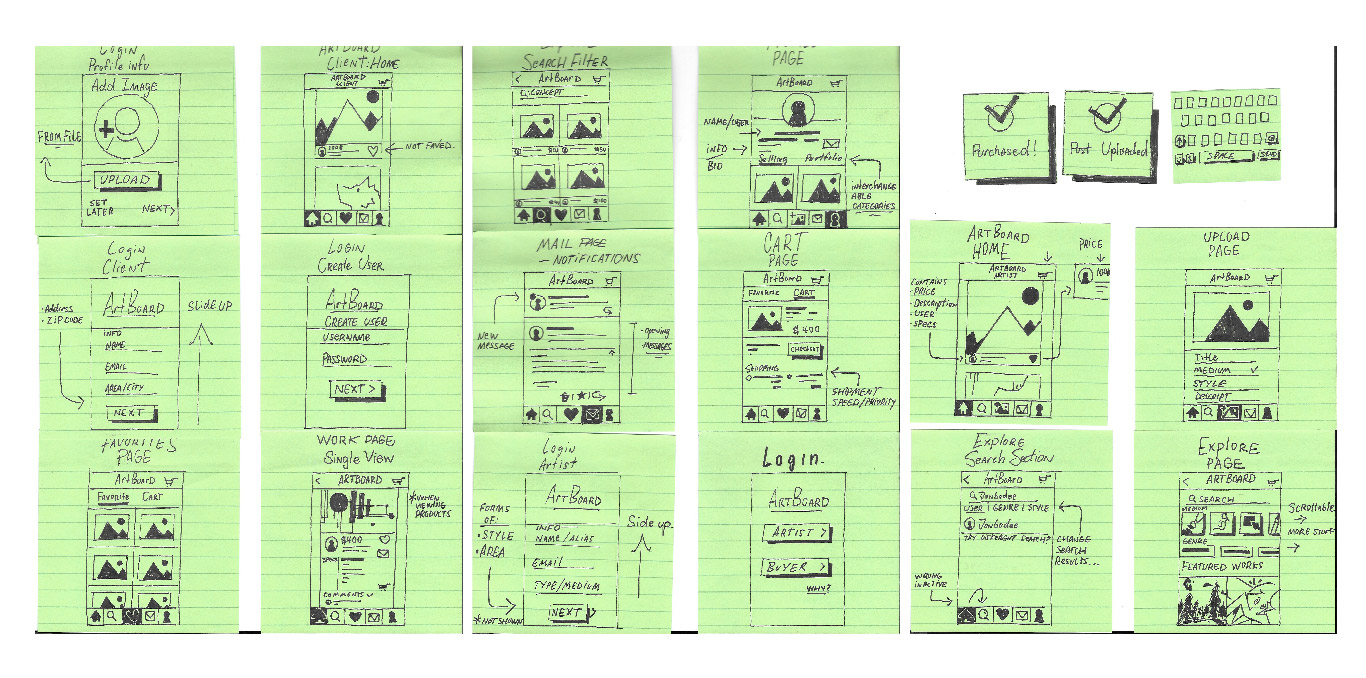 Login
Profile info
Add Image
FROM FILE
UPLOAD
SET
LATER
NEXT>
ARTBOARD
CLIENT:HOME
ARTBOARD
CLIENT
1000
NOT FAVED.
SEARCH FILTER
< ArtBoard
CONCEPT
PAGE
ArtBoard
NAME/USER
INFO
/
BIO
Selling
Portfolio
INTERCHANGE
ABLE
CATEGORIES
Purchased!
Post Uploaded
SPACE
SEND
Login
Client
•Address
•ZIPCODE
ArtBoard
SLIDE UP
INFO
NAME
EMAIL
AREA/CITY
NEXT
LOGIN
Create User
ArtBoard
CREATE USER
USERNAME
PASSWORD
NEXT >
MAIL PAGE
— NOTIFICATIONS
ArtBoard
NEW
MESSAGE
•opening
MESSAGES
CART
PAGE
ArtBoard
FAVORITE
CART
$ 400
CHECKOUT
SHIPPING
SHIPMENT
SPEED/PRIORITY
ARTBOARD
HOME
ARTBOARD
ARTIST
PRICE
1000
CONTAINS
•PRICE
•Description
•USER
•SPECS
UPLOAD
PAGE
ARTBOARD
Title
MEDIUM
STYLE
DESCRIPT
FAVORITES
PAGE
ArtBoard
Favorite
Cart
WORK PAGE
Single View
< ARTBOARD
*WHEN
VIEWING
PRODUCTS
$400
SPECS
COMMENTS
Login
Artist
ArtBoard
FORMS
OF:
•STYLE
•AREA
INFO
NAME/ALIAS
EMAIL
TYPE/MEDIUM
NEXT
*NOT SHOWN
Side up.
Login.
ArtBoard
ARTIST >
BUYER >
WHY?
Explore
Search Section
< ArtBoard
Jonbodee
USER | GENRE | STYLE
Jonbodee
TRY DIFFERENT SEARCH?
CHANGE
SEARCH
RESULTS...
WRONG
INACTIVE
EXPLORE
PAGE
< ARTBOARD
SEARCH
MEDIUM
GENRE
FEATURED WORKS
Scrollable
MORE STUFF